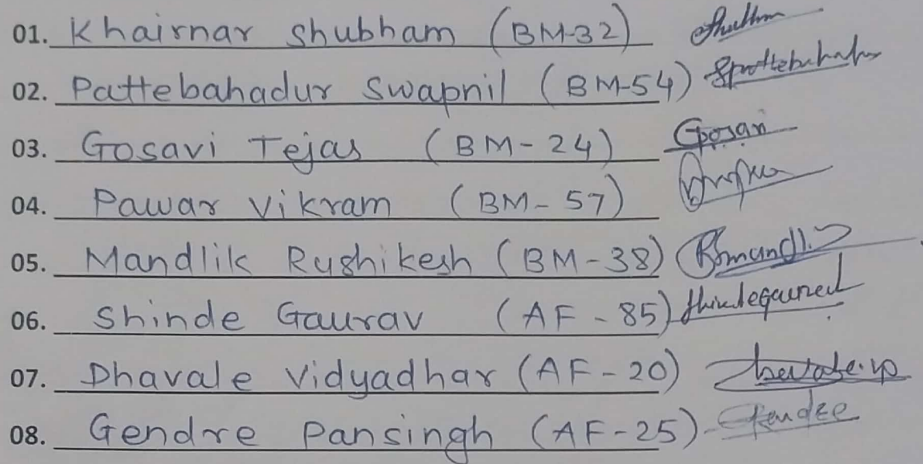 01. Khairnar Shubham (BM-32)
02. Pattebahadur Swapnil (BM-54) Spattebahadur
03. Gosavi Tejas (BM-24) Gosavi
04. Pawar Vikram (BM-57)
05. Mandlik Rushikesh (BM-38)
06. Shinde Gaurav (AF-85) Shindegaurav
07. Dhavale Vidyadhar (AF-20)
08. Gendre Pansingh (AF-25)